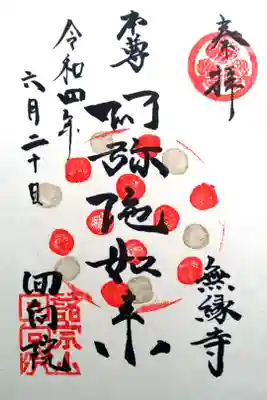 奉拝
本尊
阿弥陀如来
無縁寺
回向院
令和四年
六月二十日